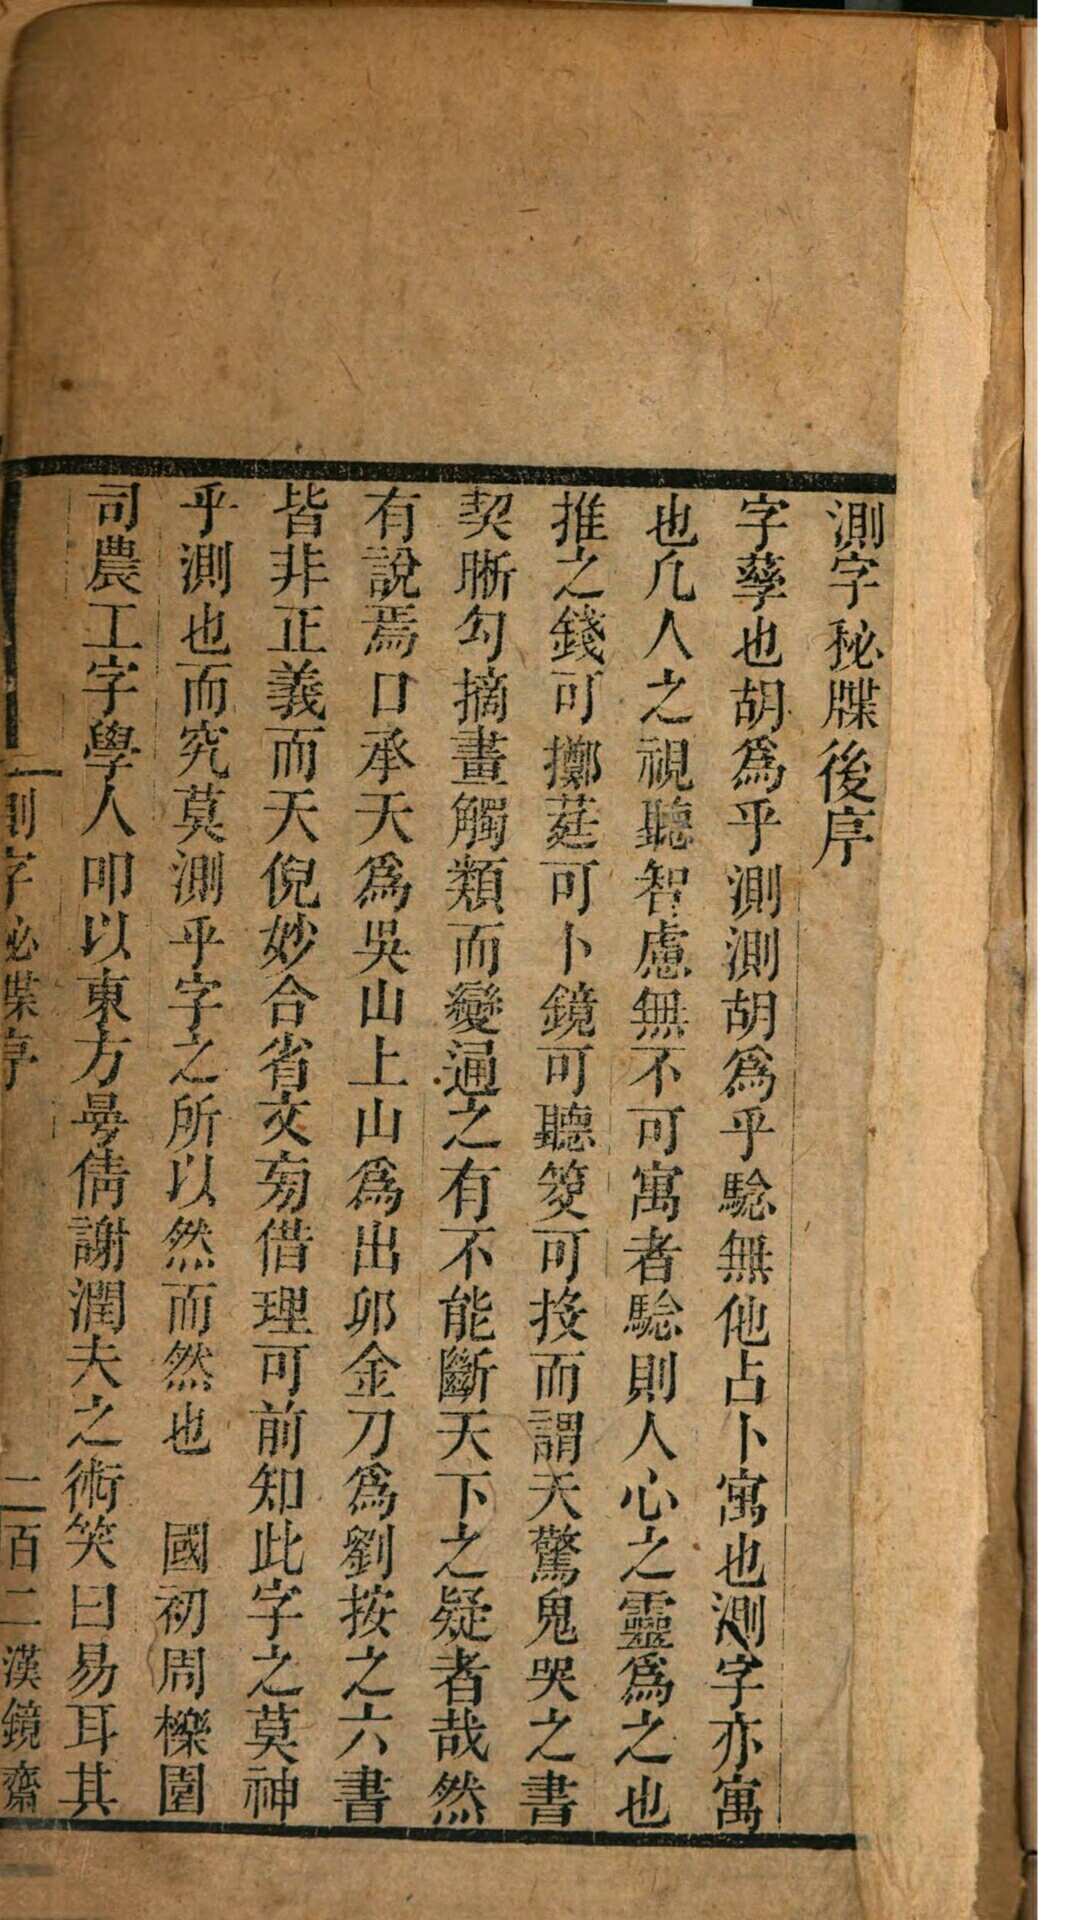 測字秘牒後序
字孳也胡爲乎測測胡爲乎騐無他占卜寓也測字亦寓
也凢人之視聽智慮無不可寓者騐則人心之靈爲之也
推之錢可擲莛可卜鏡可聽筊可投而謂天驚鬼哭之書
契晰勾摘畫觸類而變通之有不能斷天下之疑者哉然
有說焉口承天爲吳山上山爲出卯金刀爲劉按之六書
皆非正義而天倪妙合省文旁借理可前知此字之莫神
乎測也而究莫測乎字之所以然而然也 國初周櫟園
司農工字學人叩以東方曼倩謝潤夫之術笑曰易耳其
測字秘牒序 一百二 漢鏡齋